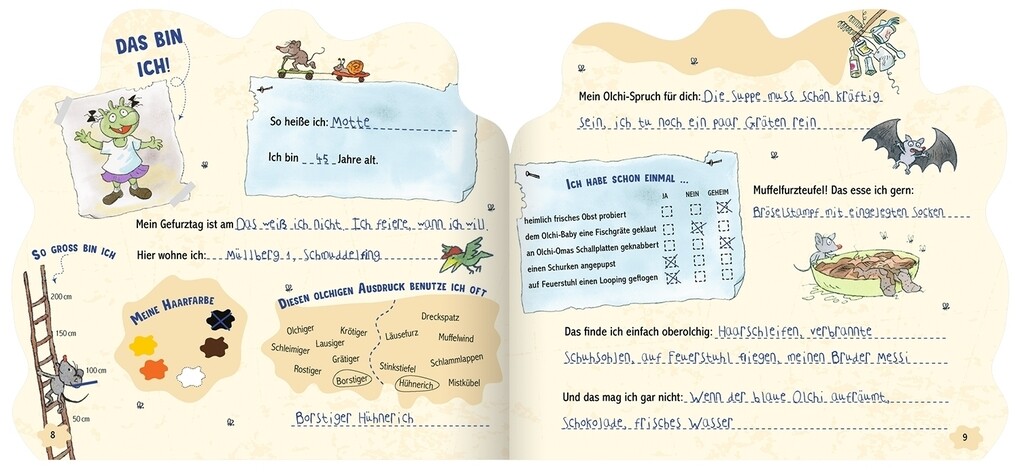 DAS BIN
ICH!
So heiße ich: Motte
Ich bin 45 Jahre alt.
Mein Gefurztag ist am Das weiß ich nicht. Ich feiere, wann ich will.
Hier wohne ich: Müllberg 1, Schmuddelfing
SO GROSS BIN ICH
200 cm
150 cm
100 cm
50 cm
MEINE HAARFARBE
DIESEN OLCHIGEN AUSDRUCK BENUTZE ICH OFT
Olchiger
Krötiger
Schleimiger
Lausiger
Grätiger
Rostiger
Borstiger
Dreckspatz
Läusefurz
Muffelwind
Schlammlappen
Stinkstiefel
Hühnerich
Mistkübel
Borstiger Hühnerich
8
Mein Olchi-Spruch für dich: Die Suppe muss schön kräftig
sein, ich tu noch ein paar Gräten rein
ICH HABE SCHON EINMAL ...
JA NEIN GEHEIM
heimlich frisches Obst probiert
dem Olchi-Baby eine Fischgräte geklaut
an Olchi-Omas Schallplatten geknabbert
einen Schurken angepupst
auf Feuerstuhl einen Looping geflogen
Muffelfurzteufel! Das esse ich gern:
Bröselstampf mit eingelegten Socken
Das finde ich einfach oberolchig: Haarschleifen, verbrannte
Schuhsohlen, auf Feuerstuhl fliegen, meinen Bruder Messi
Und das mag ich gar nicht: Wenn der blaue Olchi aufräumt,
Schokolade, frisches Wasser
9